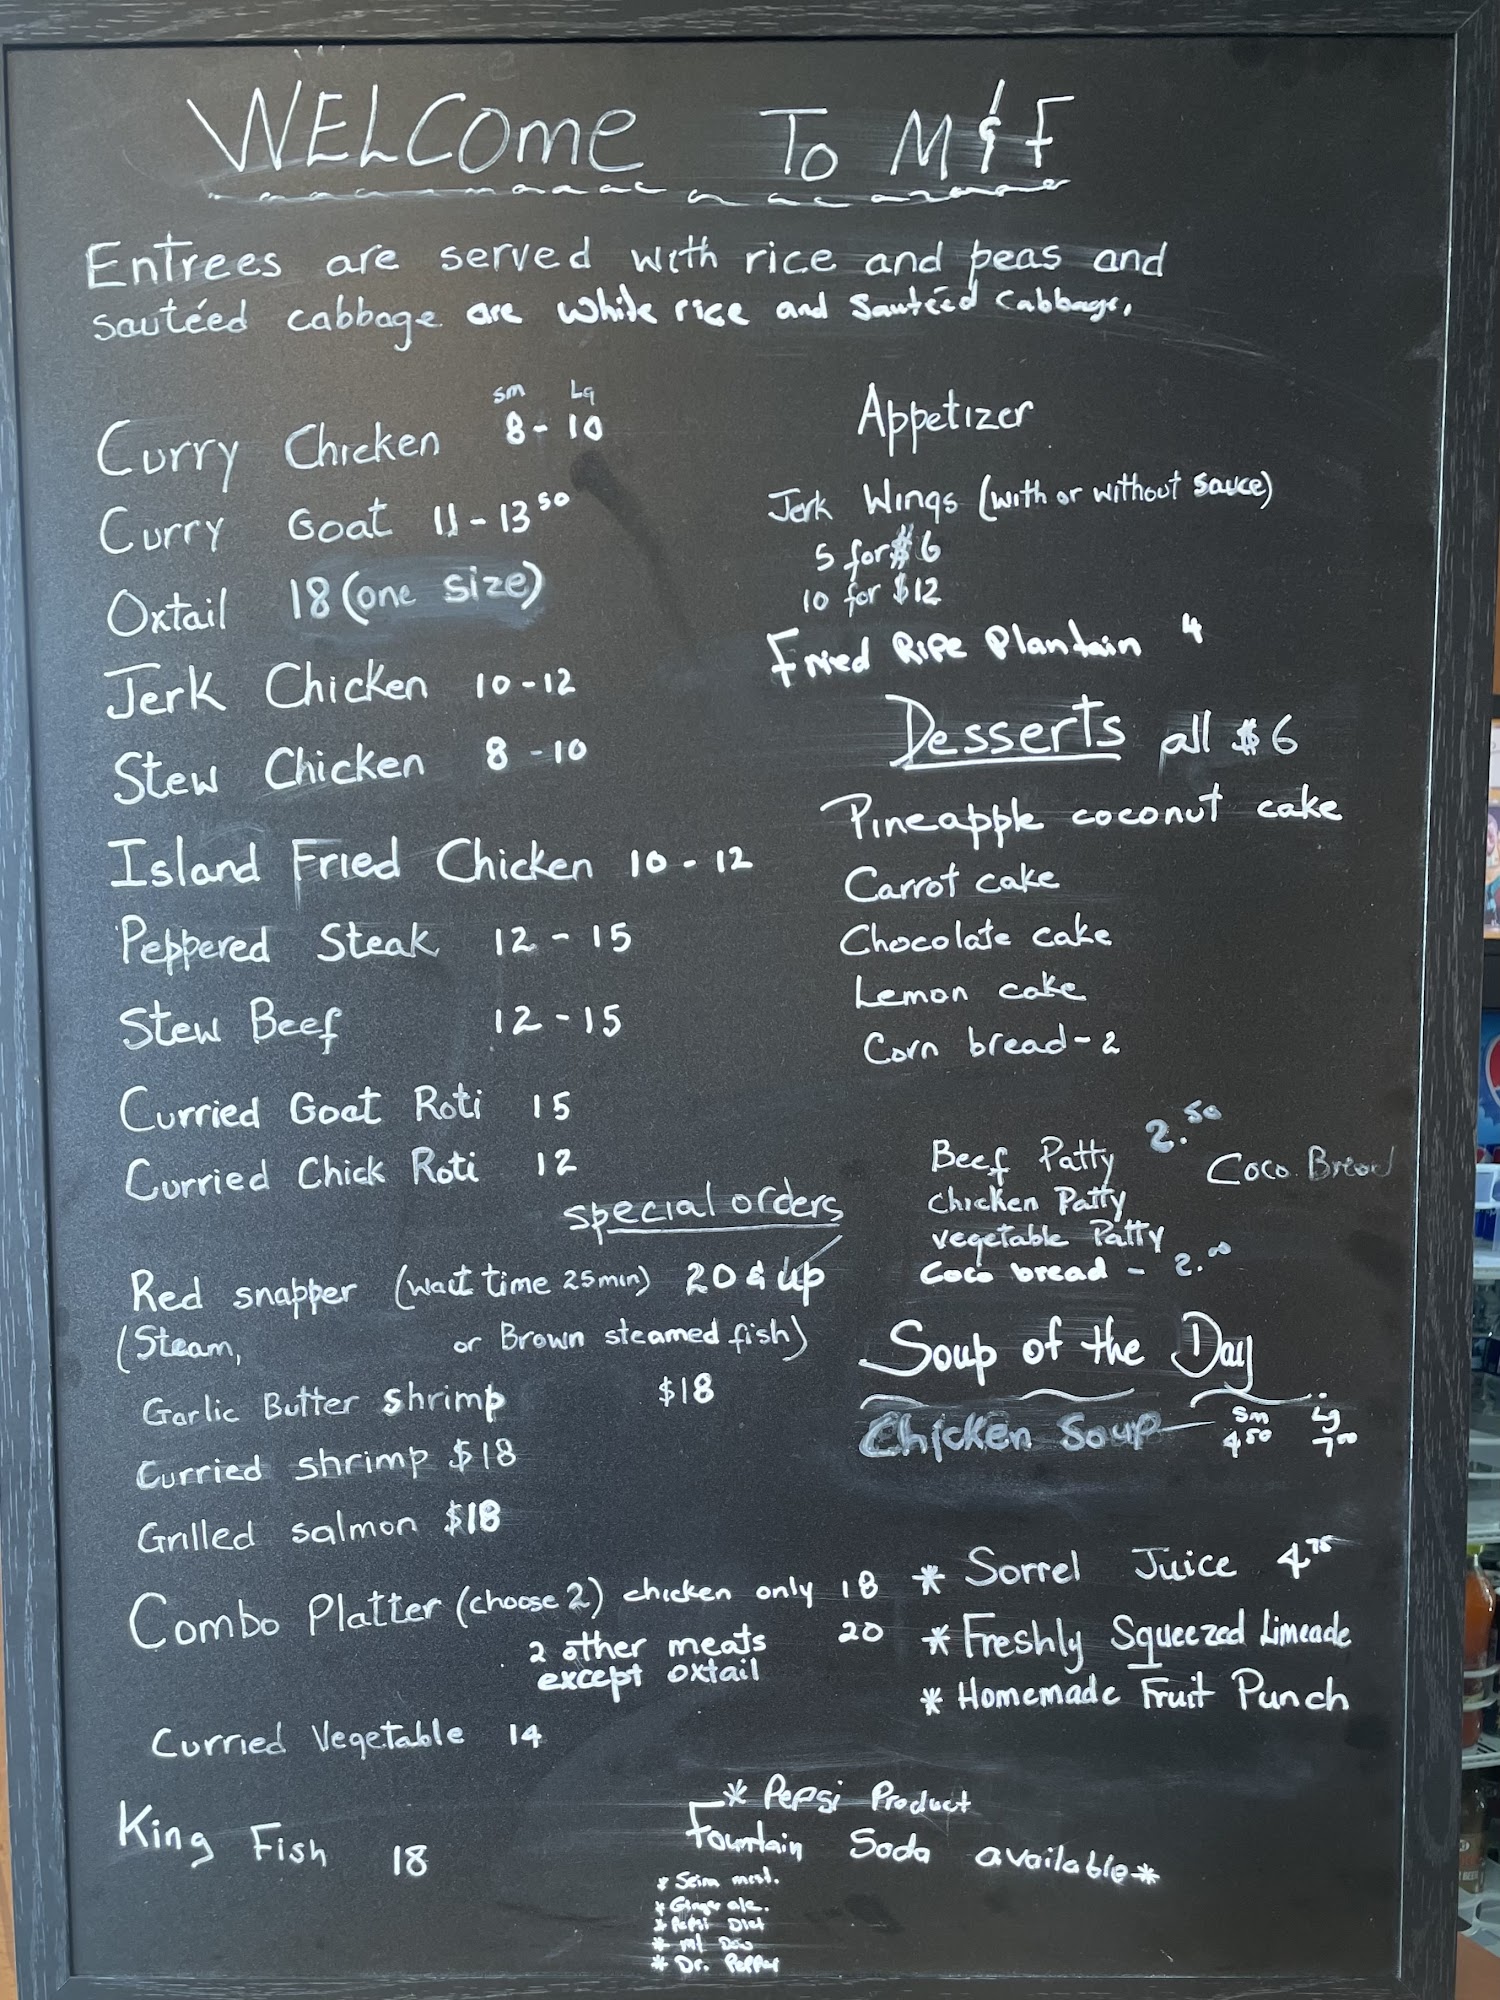 WELCome To M & F
Entrees are served with rice and peas and
sautéed cabbage are white rice and Sautéed Cabbage.
sm Lg
Curry Chicken 8 - 10
Curry Goat 11 - 13 50
Oxtail 18 (one size)
Jerk Chicken 10 - 12
Stew Chicken 8 - 10
Island Fried Chicken 10 - 12
Peppered Steak 12 - 15
Stew Beef 12 - 15
Curried Goat Roti 15
Curried Chick Roti 12
special orders
Red snapper (wait time 25min) 20 & up
(Steam, or Brown steamed fish)
Garlic Butter shrimp $18
Curried shrimp $18
Grilled salmon $18
Combo Platter (choose 2) chicken only 18
2 other meats 20
except oxtail
Curried Vegetable 14
King Fish 18
Appetizer
Jerk Wings (with or without sauce)
5 for $6
10 for $12
Fried Ripe Plantain 4
Desserts all $6
Pineapple coconut cake
Carrot cake
Chocolate cake
Lemon cake
Corn bread - 2
Beef Patty 2.50 Coco Bread
Chicken Patty
vegetable Patty
Coco bread - 2.00
Soup of the Day
sm Lg
Chicken Soup 4 50 7 00
* Sorrel Juice 4 75
* Freshly Squeezed Limeade
* Homemade Fruit Punch
* Pepsi Product
Fountain Soda available *
* Ginger ale.
* Pepsi Diet
* Mt Dew
* Dr. Pepper